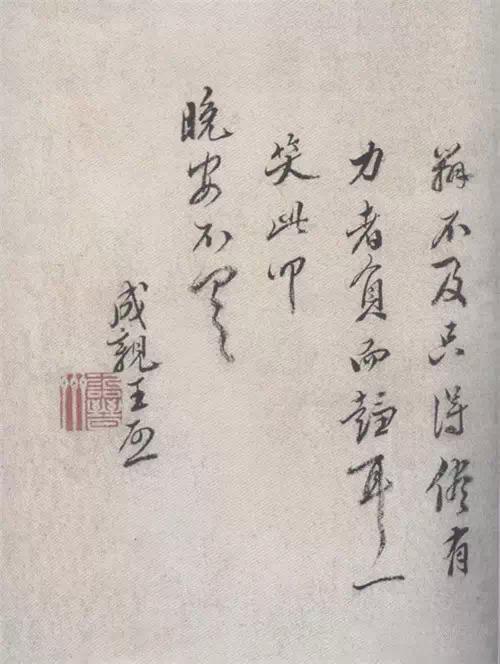 辦不及只得俟有
力者負而趨耳一
笑此叩
晚安不
成親王